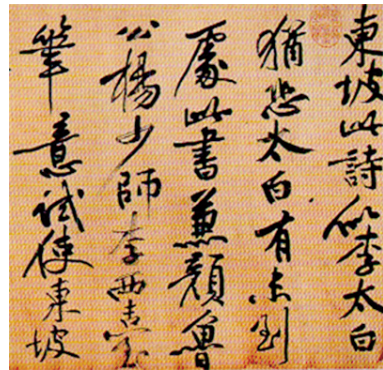 東坡此詩似李太白
猶恐太白有未到
處此書兼顏魯
公楊少師李西臺
筆意試使東坡